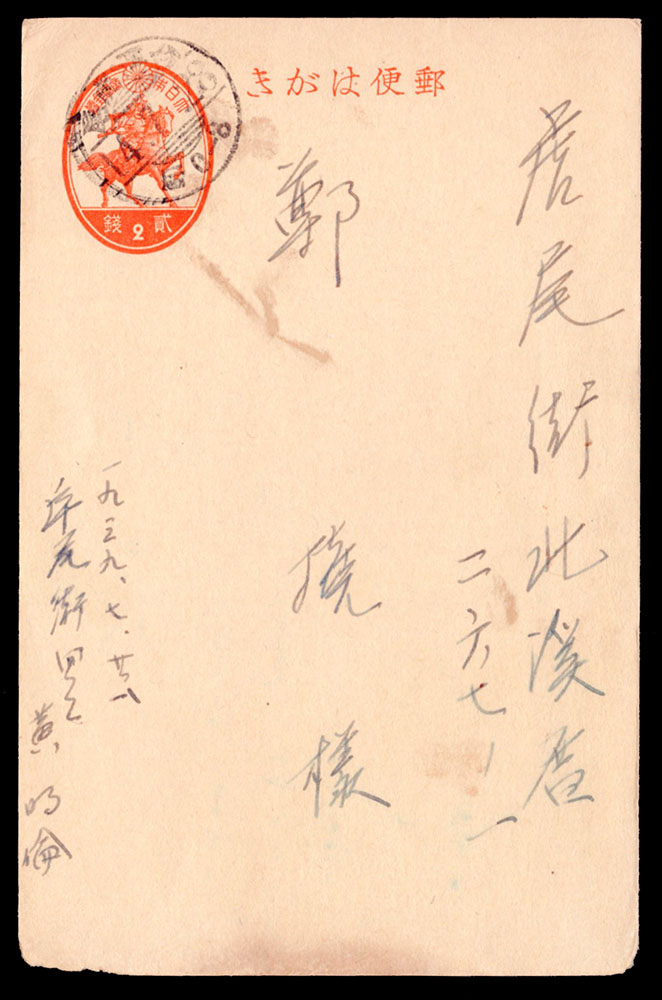 郵便はがき
貳2錢
虎尾街北溪厝
二六七ノ一
鄭 樣
一九三九、七、廿八
虎尾街
黃明倫